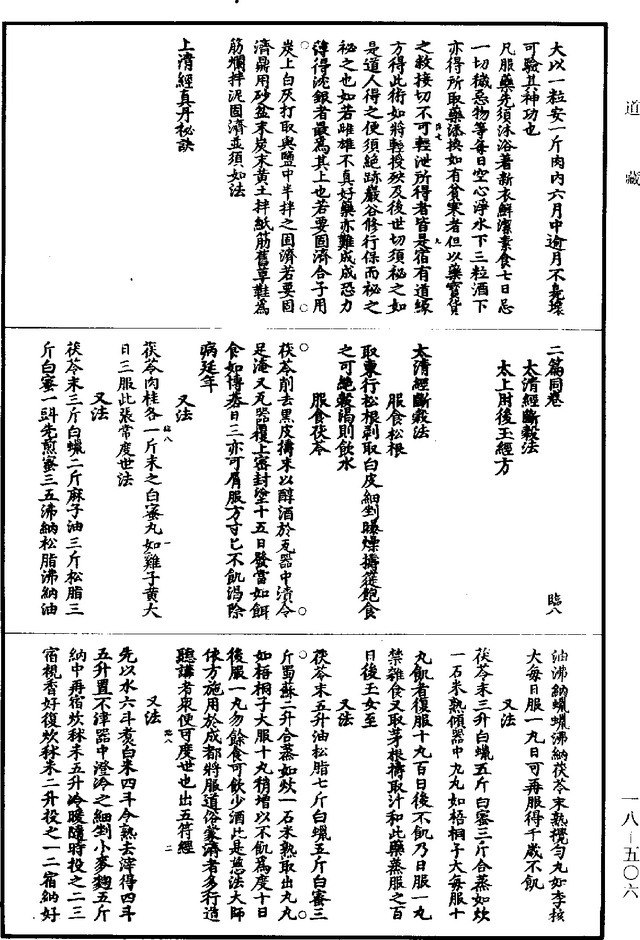 道藏
大以一粒安一斤肉內六月中逾月不臭壞
可驗其神功也
凡服藥先須沐浴著新衣鮮潔素食七日忌
一切穢惡物等每日空心淨水下三粒酒下
亦得所取藥添換如有貧寒者但以藥寶貨
之救接切不可輕泄所得者皆是宿有道緣
方得此術如將輕授殃及後世切須秘之如
是道人得之便須絕跡巖谷修行保而秘之
秘之也如若雌雄不真好藥亦難成成恐力
薄得沈銀者最為其上也若要固濟合子用
炭上白灰打取與鹽中半拌之固濟若要固
濟鼎用砂盆末炭末黃土拌紙筋舊草鞋為
筋爛拌泥固濟並須如法
上清經真丹秘訣
二篇同卷
臨八
太清經斷穀法
太上肘後玉經方
太清經斷穀法
服食松根
取東行松根剥取白皮細剉曝燥擣篩飽食
之可絕穀渴則飲水
服食茯苓
茯苓削去黑皮擣末以醇酒於瓦器中漬令
足淹又瓦器覆上密封塗十五日發當如餌
食如博棊日三亦可屑服方寸匕不飢渴除
病延年
又法
茯苓肉桂各一斤末之白蜜丸如雞子黃大
臨八
一
日三服此張常度世法
又法
茯苓末三斤白蠟二斤麻子油三斤松脂三
斤白蜜一㪷先煎蜜三五沸納松脂沸納油
油沸納蠟蠟沸納茯苓末熟攪勻丸如李核
大每日服一丸日可再服得千歲不飢
又法
茯苓末三升白蠟五斤白蜜三斤合蒸如炊
一石米熟傾器中丸丸如梧桐子大每服十
丸飢者復服十丸百日後不飢乃日服一丸
禁雜食又取茅根擣取汁和此藥蒸服之百
日後玉女至
又法
茯苓末五升油松脂七斤白蠟五斤白蜜三
斤蜀蘇二升合蒸如炊一石米熟取出丸丸
如梧桐子大服十丸稍增以不飢為度十日
後服一丸勿餘食可飲少酒此是葱法大師
依方施用於成都將服道俗蒙濟者多行造
聽講者衆便可度世也出五符經
臨八
二
又法
先以水六斗煮白米四斗令熟去滓得四斗
五升置不津器中澄冷之細剉小麥麴五斤
納中再宿炊秫米五升冷暖隨時投之二三
宿視香好復炊秫米二升投之一二宿納好
一八－五〇六